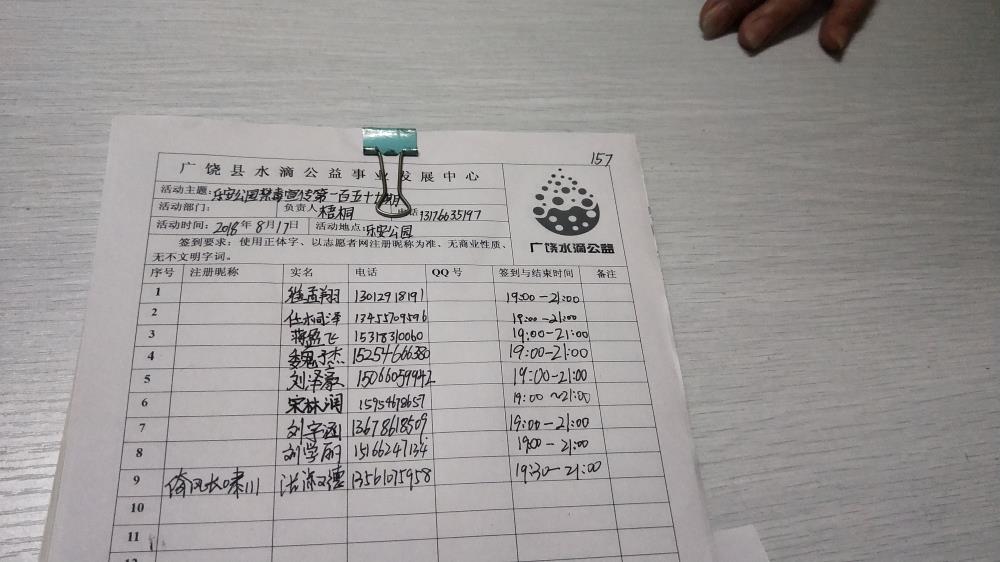 157
广饶县水滴公益事业发展中心
活动主题:乐安公园禁毒宣传第一百五十七期
活动部门: 负责人 梧桐 电话 13176635197
活动时间: 2018年8月17日 活动地点: 乐安公园
签到要求:使用正体字、以志愿者网注册昵称为准、无商业性质、
无不文明字词。
广饶水滴公益
序号 注册昵称 实名 电话 QQ号 签到与结束时间 备注
1 徐孟翔 13012918191 19:00-21:00
2 任桐泽 13455709596 19:00-21:00
3 蒋盈飞 15318310060 19:00-21:00
4 魏子杰 15254666380 19:00-21:00
5 刘泽豪 15066059942 19:00-21:00
6 宋林润 15954678657 19:00~21:00
7 刘宇涵 13678618509 19:00-21:00
8 刘学丽 15166247134 19:00-21:00
9 倚风长啸川 13561075958 19:30-21:00
10
11